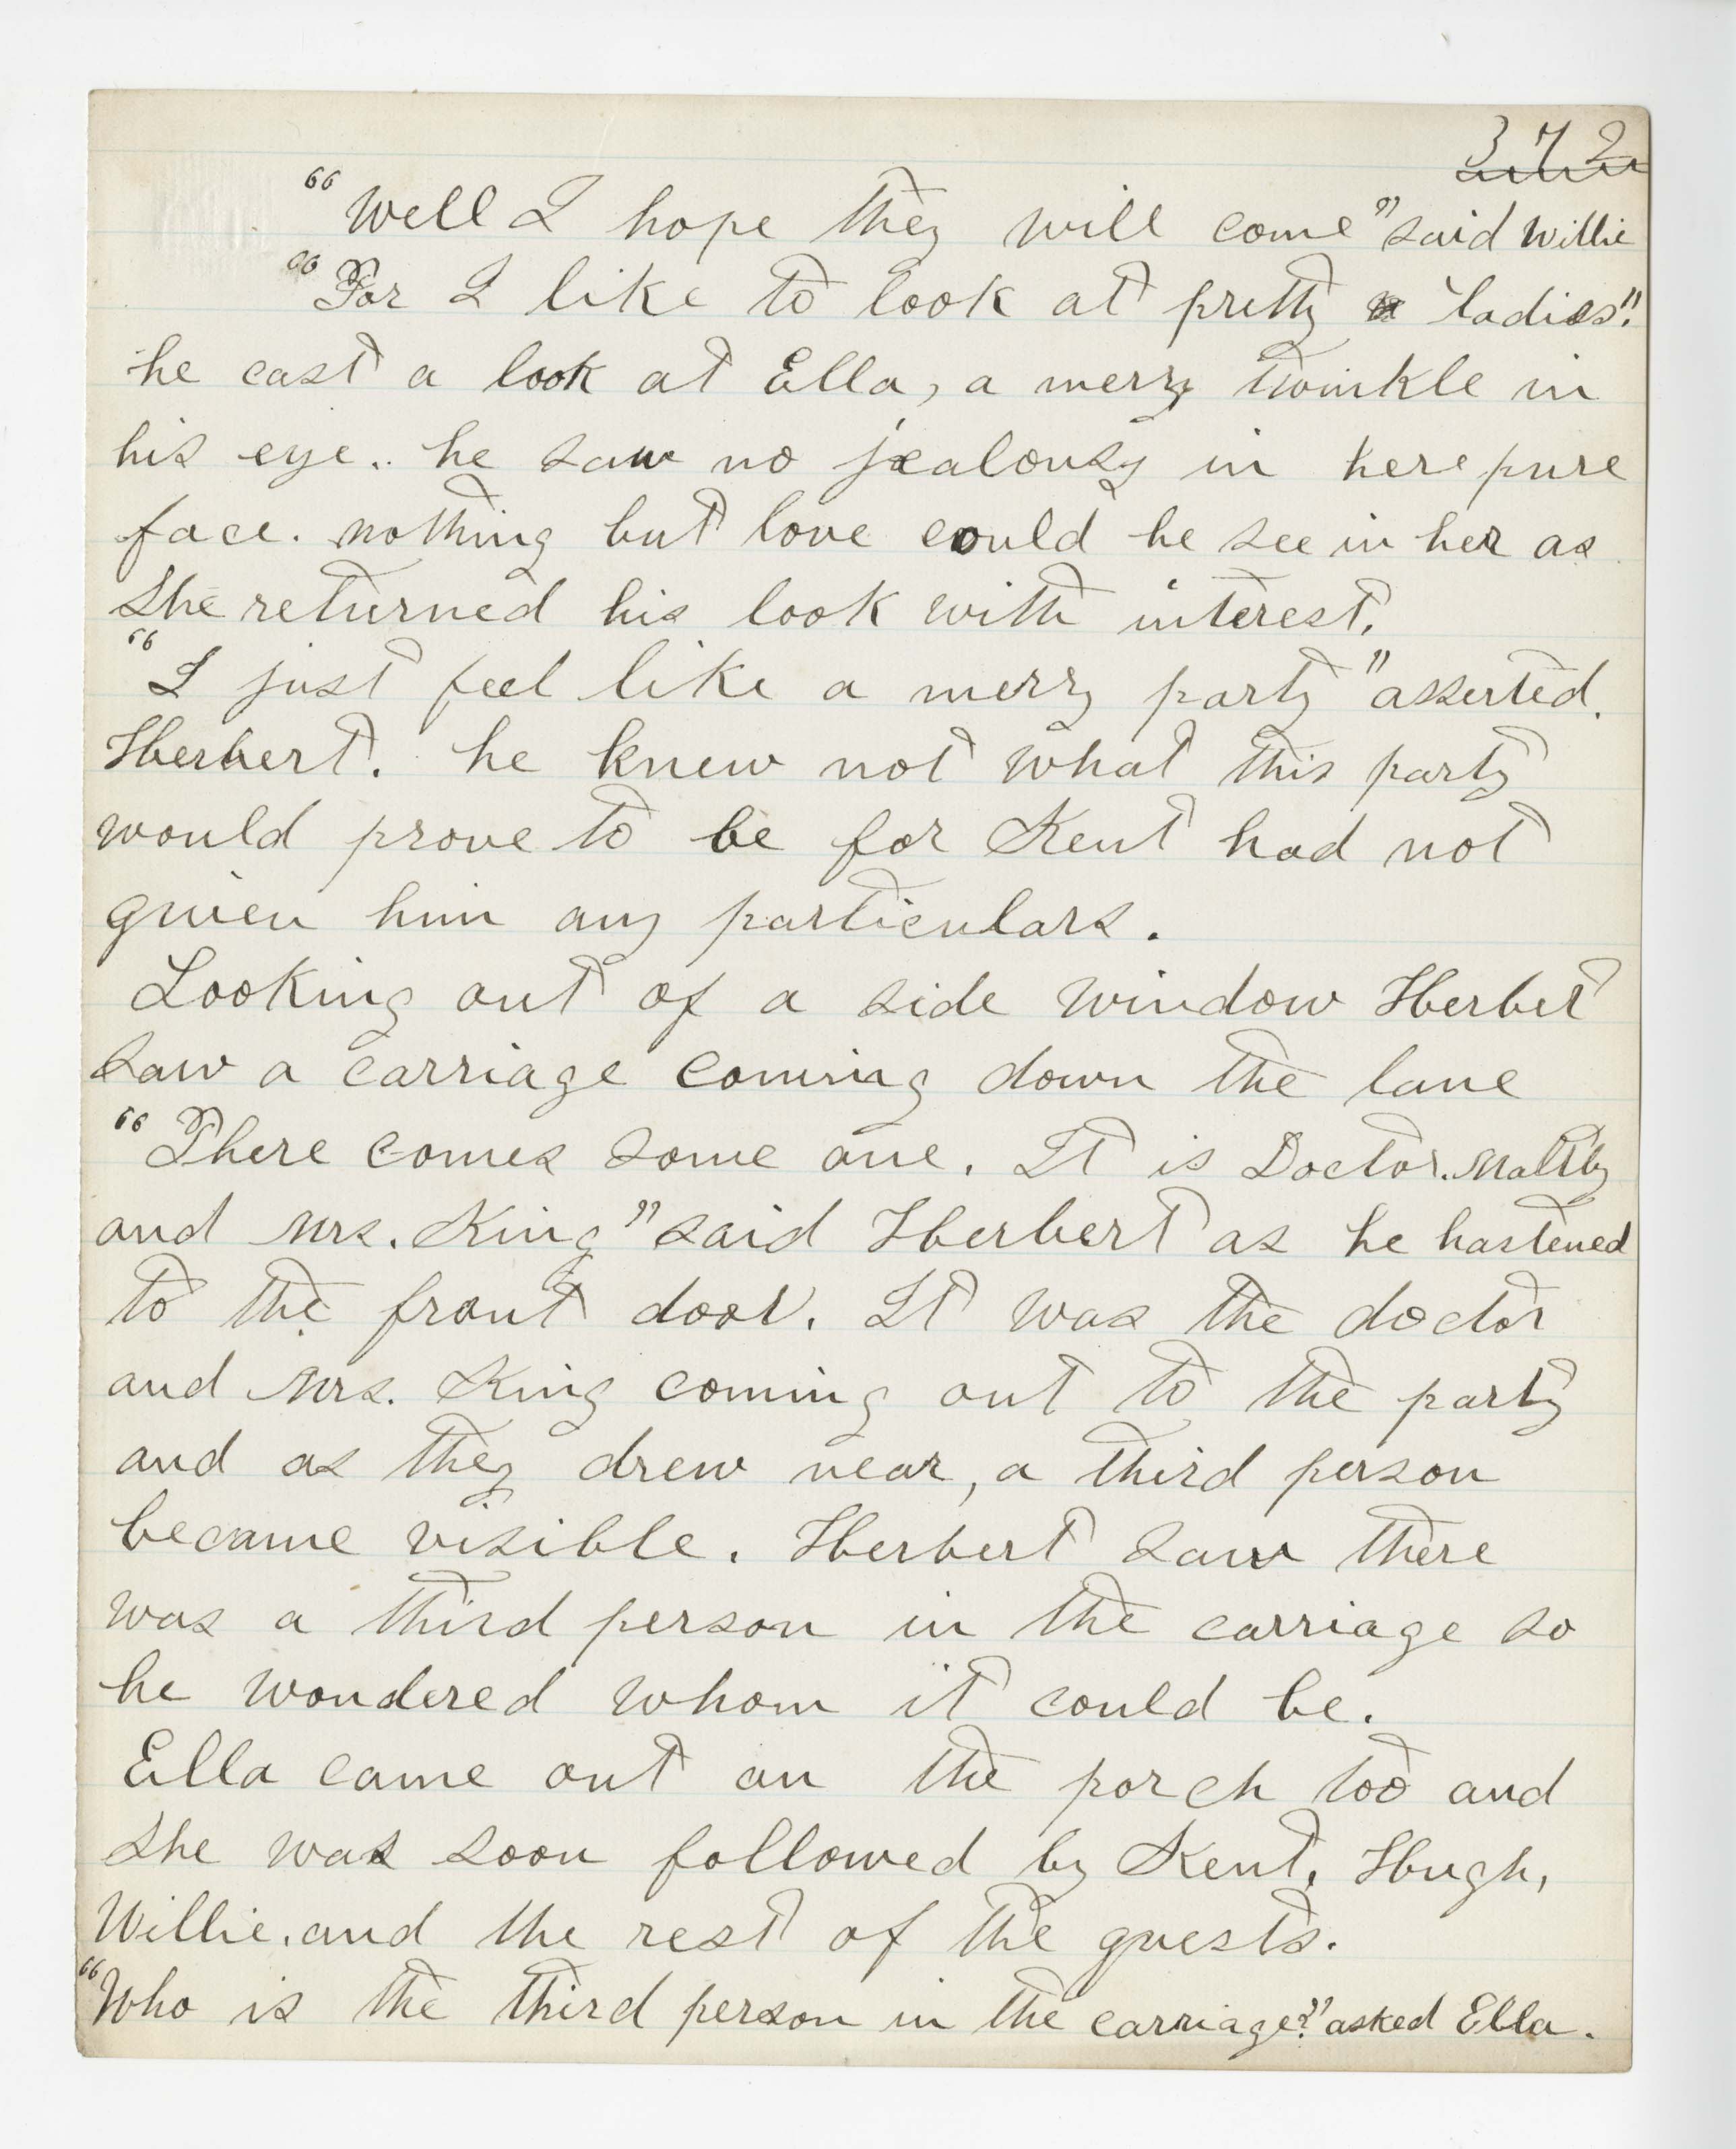 372
"Well I hope they will come" said Willie
"For I like to look at pretty ladies".
he cast a look at Ella, a merry twinkle in
his eye. he saw no jealousy in here pure
face. nothing but love could he see in her as
she returned his look with interest.
"I just feel like a merry party" asserted.
Herbert. he knew not what this party
would prove to be for Kent had not
given him any particulars.
Looking out of a side window Herbet
saw a carriage coming down the lane
"There comes some one. It is Doctor. Maltby
and Mrs. King" said Herbert as he hastened
to the front door. It was the doctor
and Mrs. King coming out to the party
and as they drew near, a third person
became visible. Herbert saw there
was a third person in the carriage so
he wondered whom it could be.
Ella came out on the porch too and
she was soon followed by Kent, Hugh,
Willie, and the rest of the guests.
"Who is the third person in the carriage?" asked Ella.